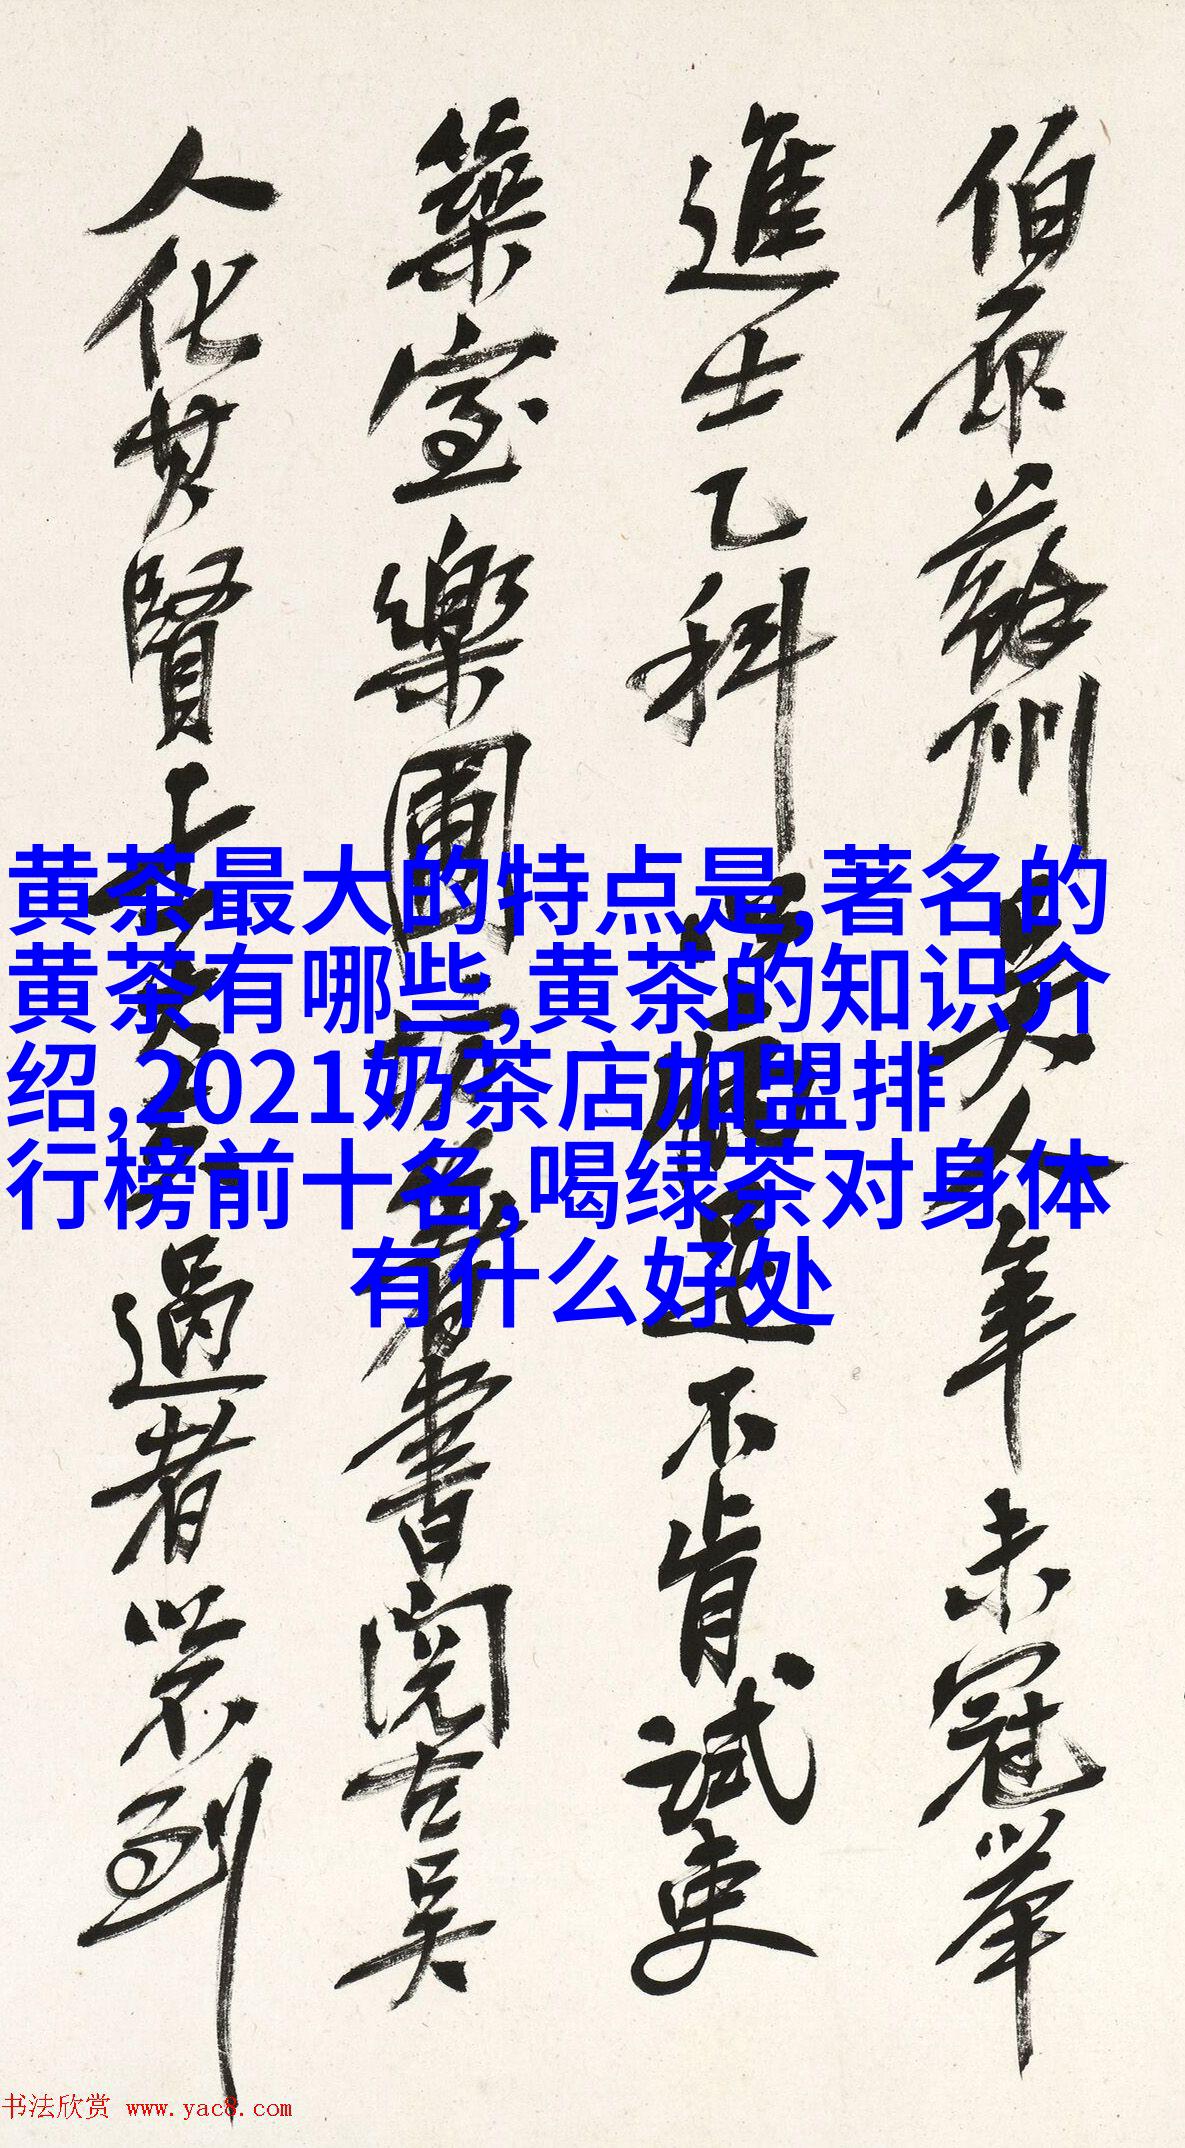 伯原蘇州吳人年未冠舉
進士乙科
不肯試吏
築室樂圃
著書閱古吳
人化其賢
過者以不到
黄茶最大的特点是,著名的
黄茶有哪些,黄茶的知识介
绍,2021奶茶店加盟排
行榜前十名,喝绿茶对身体
有什么好处
书法欣赏 www.yac8.com